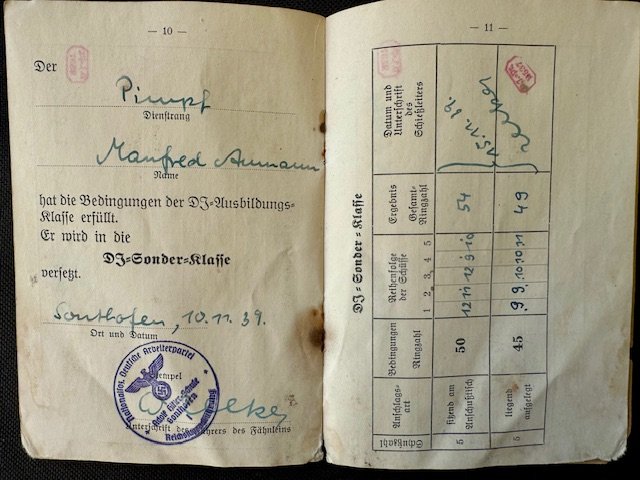 — 10 —
Der
Pimpf
Dienstrang
Manfred Aumann
Name
hat die Bedingungen der DJ=Ausbildungs=
Klasse erfüllt.
Er wird in die
DJ=Sonder=Klasse
versetzt.
Sonthofen, 10.11.39.
Ort und Datum
Stempel
Unterschrift des Führers des Fähnleins
Nationalsoz. Deutsche Arbeiterpartei
Adolf Hitler-Schule
Sonthofen
— 11 —
DJ = Sonder = Klasse
Schußzahl
Anschlags=
art
Bedingungen
Ringzahl
Reihenfolge
der Schüsse
1 2 3 4 5
Ergebnis
Gesamt=
Ringzahl
Datum und
Unterschrift
des
Schießleiters
5
sitzend am
Anschußtisch
50
12 11 12 9 10
54
15.11.39.
5
liegend
aufgelegt
45
9 9 10 10 11
49